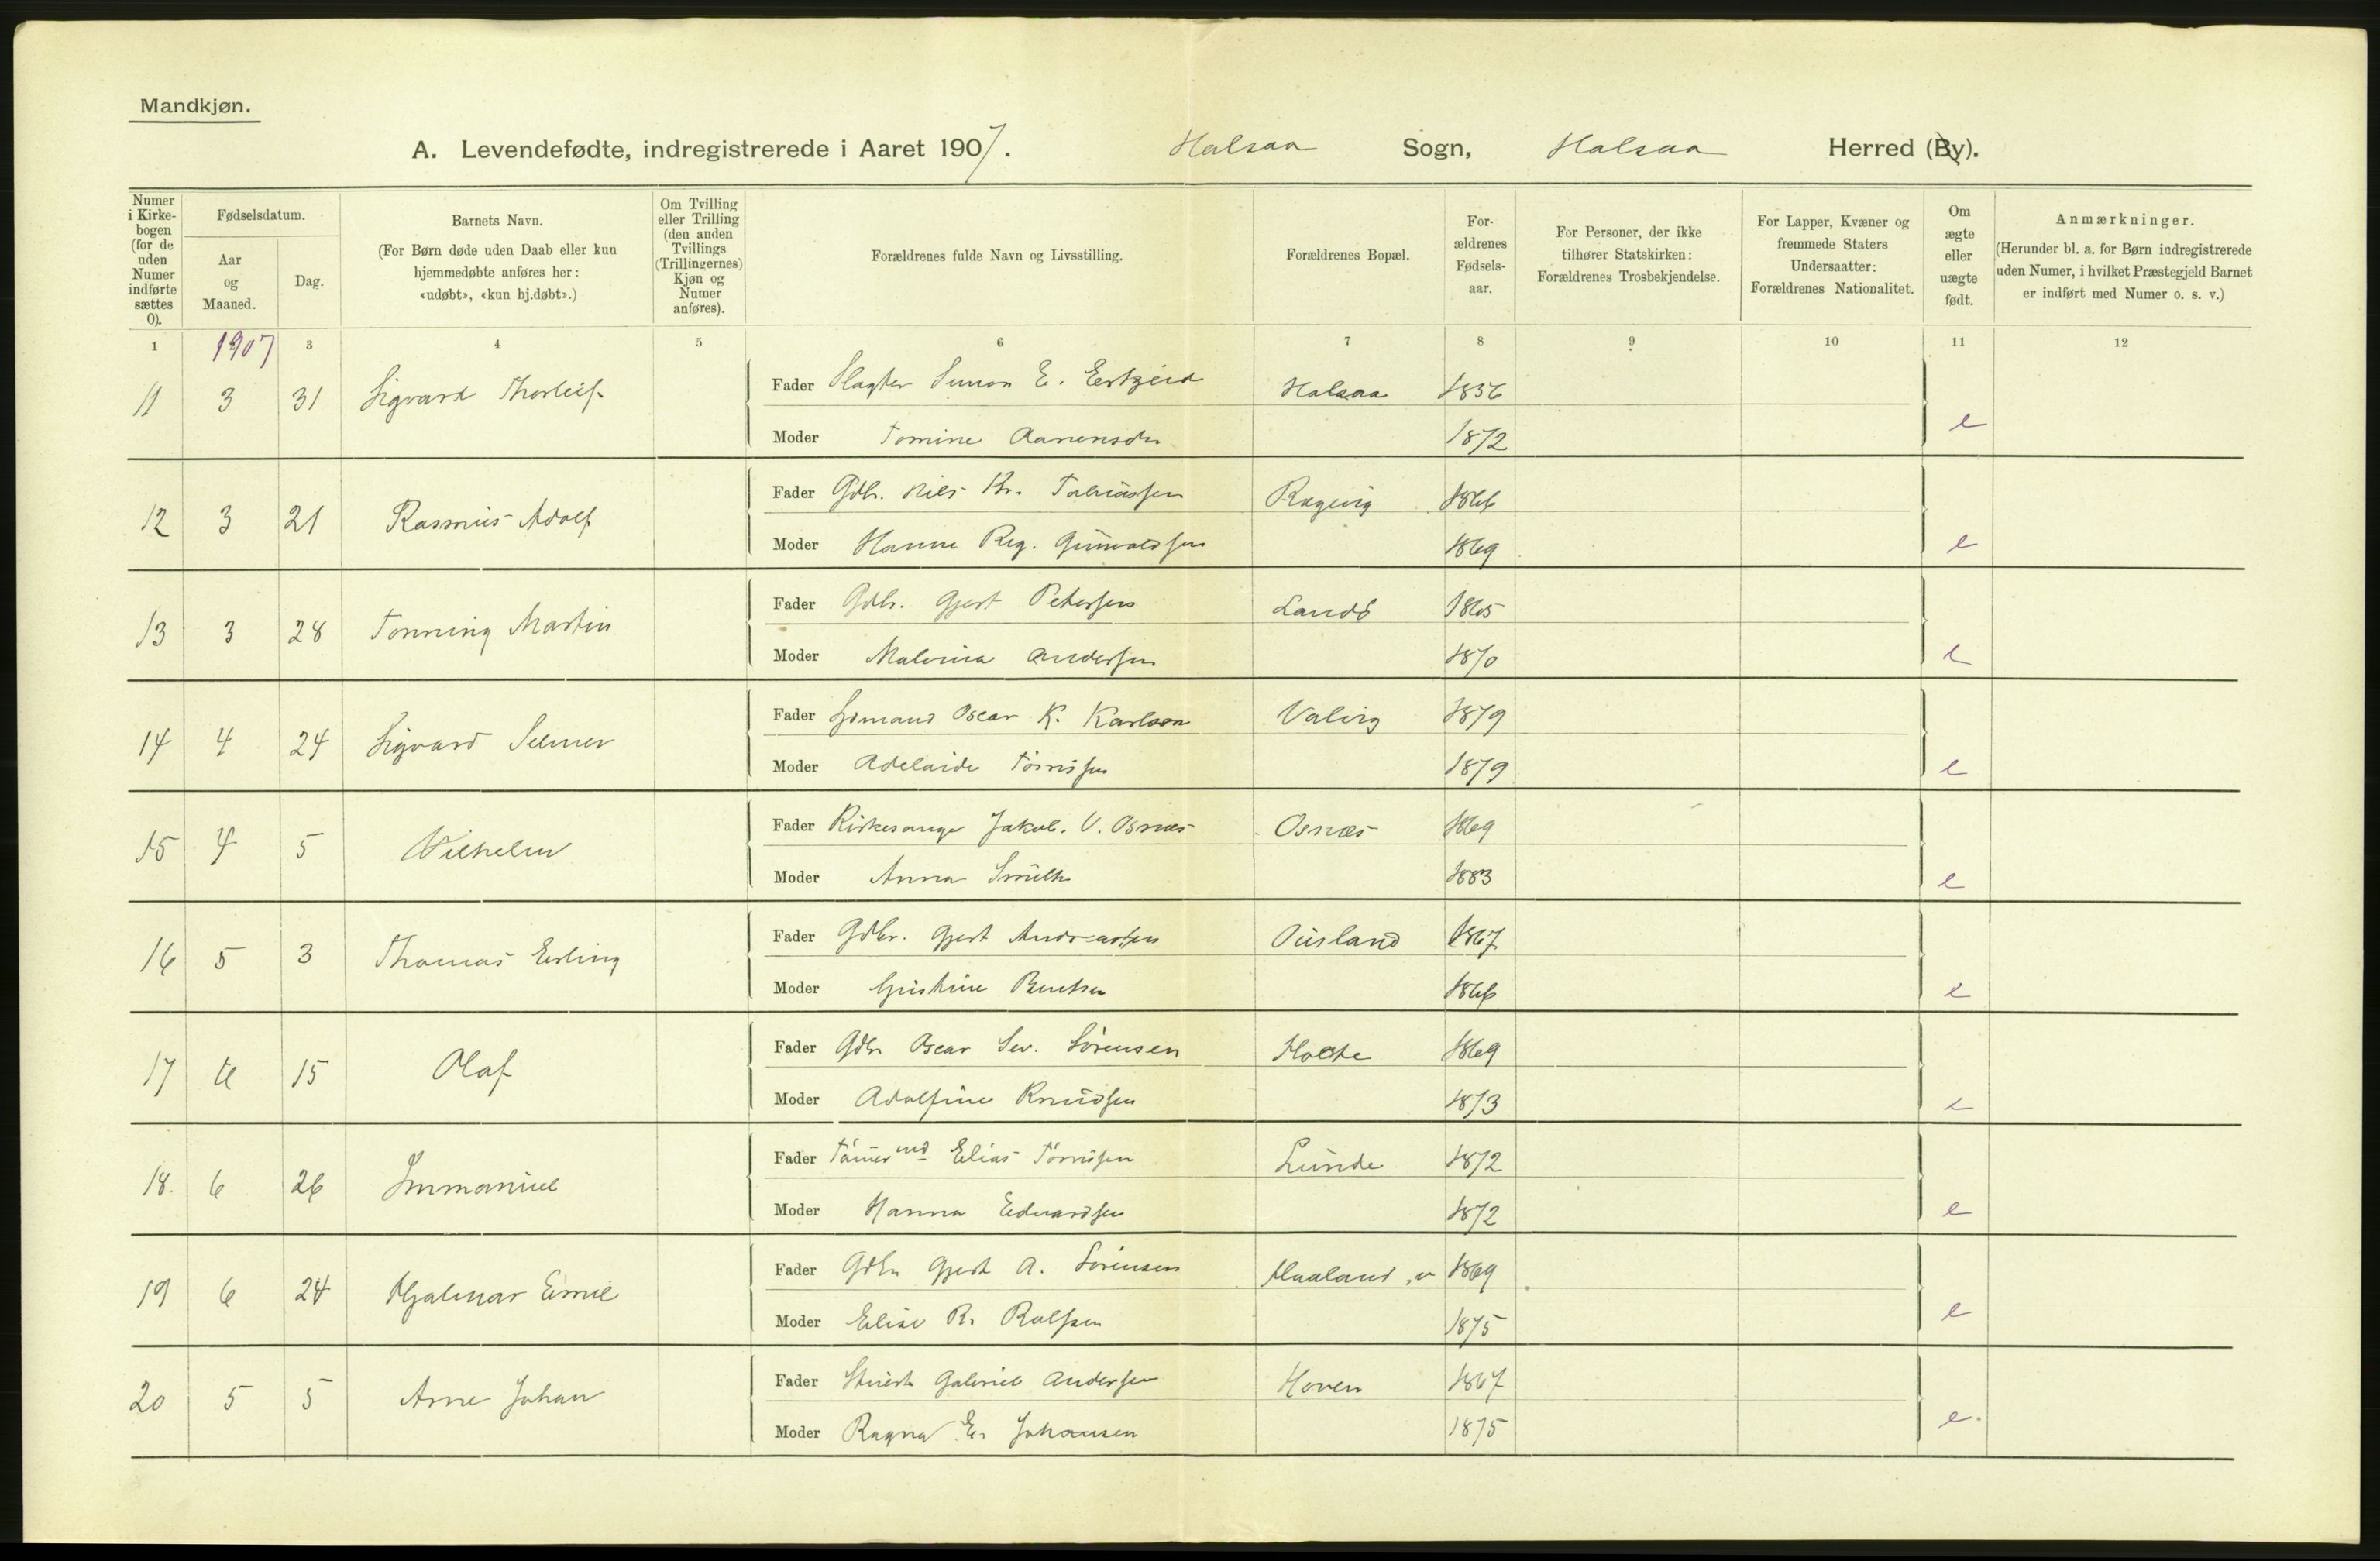 Mandkjøn.
A. Levendefødte, indregistrerede i Aaret 1907. Halsaa Sogn, Halsaa Herred (By).
Numer i Kirkebogen (for de uden Numer indførte sættes 0).
Fødselsdatum.
Aar og Maaned.
Dag.
Barnets Navn.
(For Børn døde uden Daab eller kun hjemmedøbte anføres her: «udøbt», «kun hj.døbt».)
Om Tvilling eller Trilling (den anden Tvillings (Trillingernes) Kjøn og Numer anføres).
Forældrenes fulde Navn og Livsstilling.
Forældrenes Bopæl.
Forældrenes Fødselsaar.
For Personer, der ikke tilhører Statskirken: Forældrenes Trosbekjendelse.
For Lapper, Kvæner og fremmede Staters Undersaatter: Forældrenes Nationalitet.
Om ægte eller uægte født.
Anmærkninger.
(Herunder bl. a. for Børn indregistrerede uden Numer, i hvilket Præstegjeld Barnet er indført med Numer o. s. v.)
1 1907 3 4 5 6 7 8 9 10 11 12
11 3 31 Sigvard Thorleif Fader Slagter Simon E. Halsaa 1856
Moder Tomine Aanensdr 1872 e
12 3 21 Rasmus Adolf Fader Gdbr. Nils Kr. Tobiassen Ragevig 1866
Moder Hanne Reg. Gunvaldsen 1869 e
13 3 28 Tonning Martin Fader Gdbr. Gjert Petersen Landø 1865
Moder Malvina Andersen 1870 e
14 4 24 Sigvard Selmer Fader Sjømand Oscar K. Karlsen Valvig 1879
Moder Adelaide Tønnesen 1879 e
15 4 5 Vilhelm Fader Kirkesanger Jakob V. Osnes Osnæs 1869
Moder Anna Smith 1883 e
16 5 3 Thomas Erling Fader Gdbr. Gjert Andreassen Ousland 1867
Moder Gristine Bentsen 1866 e
17 6 15 Olaf Fader Gdbr Oscar Sev. Sørensen Holte 1869
Moder Adolfine Knudsen 1873 e
18. 6 26 Immanuel Fader Tømmermd Elias Tønnesen Lunde 1872
Moder Hanna Edvardsen 1872 e
19 6 24 Hjalmar Emil Fader Gdbr Gjert A. Sørensen Haaland, v 1869
Moder Elise R. Rolfsen 1875 e
20 5 5 Arne Johan Fader Gabriel Andersen Hoven 1867
Moder Ragna E. Johansen 1875 e.